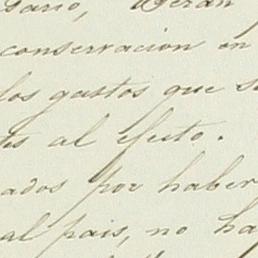 sario, Deran
conservacion en
los gastos que s
es al efecto.
ados por haber
al pais, no ha